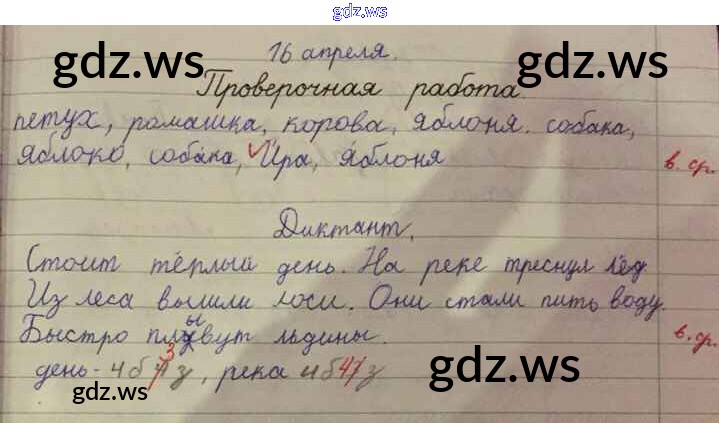 gdz.ws
16 апреля.
gdz.ws
gdz.ws
Проверочная работа.
петух, ромашка, корова, яблоня. собака,
яблоко, собака, Ира, яблоня
в. ср.
Диктант.
Стоит тёплый день. На реке треснул лёд
Из леса вышли лоси. Они стали пить воду.
Быстро плывут льдины.
в. ср.
день - 4б 3з, река 4б 4з
gdz.ws
gdz.ws